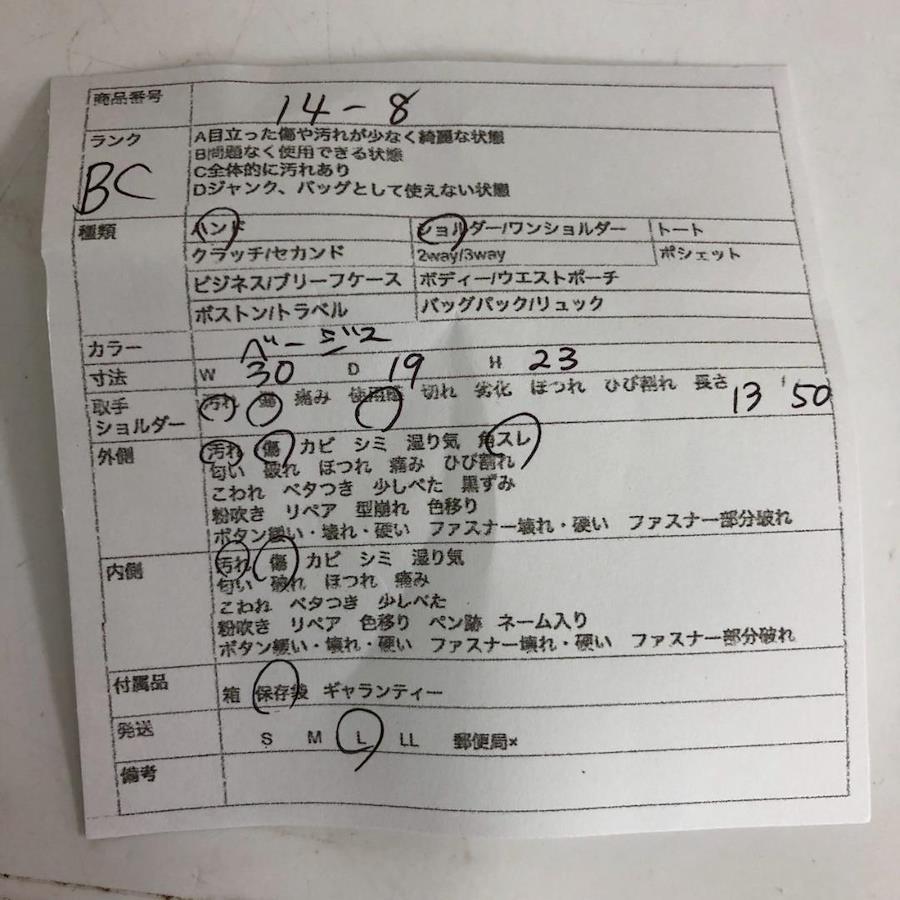 商品番号 14-8
ランク BC
A目立った傷や汚れが少なく綺麗な状態
B問題なく使用できる状態
C全体的に汚れあり
Dジャンク、バッグとして使えない状態
種類 ハンド ショルダー/ワンショルダー トート
クラッチ/セカンド 2way/3way ポシェット
ビジネス/ブリーフケース ボディー/ウエストポーチ
ボストン/トラベル バッグパック/リュック
カラー ベージュ
寸法 W 30 D 19 H 23
取手 汚れ 傷 痛み 使用感 切れ 劣化 ほつれ ひび割れ 長さ 13 50
ショルダー
外側 汚れ 傷 カビ シミ 湿り気 角スレ
匂い 破れ ほつれ 痛み ひび割れ
こわれ ベタつき 少しべた 黒ずみ
粉吹き リペア 型崩れ 色移り
ボタン緩い・壊れ・硬い ファスナー壊れ・硬い ファスナー部分破れ
内側 汚れ 傷 カビ シミ 湿り気
匂い 破れ ほつれ 痛み
こわれ ベタつき 少しべた
粉吹き リペア 色移り ペン跡 ネーム入り
ボタン緩い・壊れ・硬い ファスナー壊れ・硬い ファスナー部分破れ
付属品 箱 保存袋 ギャランティー
発送 S M L LL 郵便局×
備考